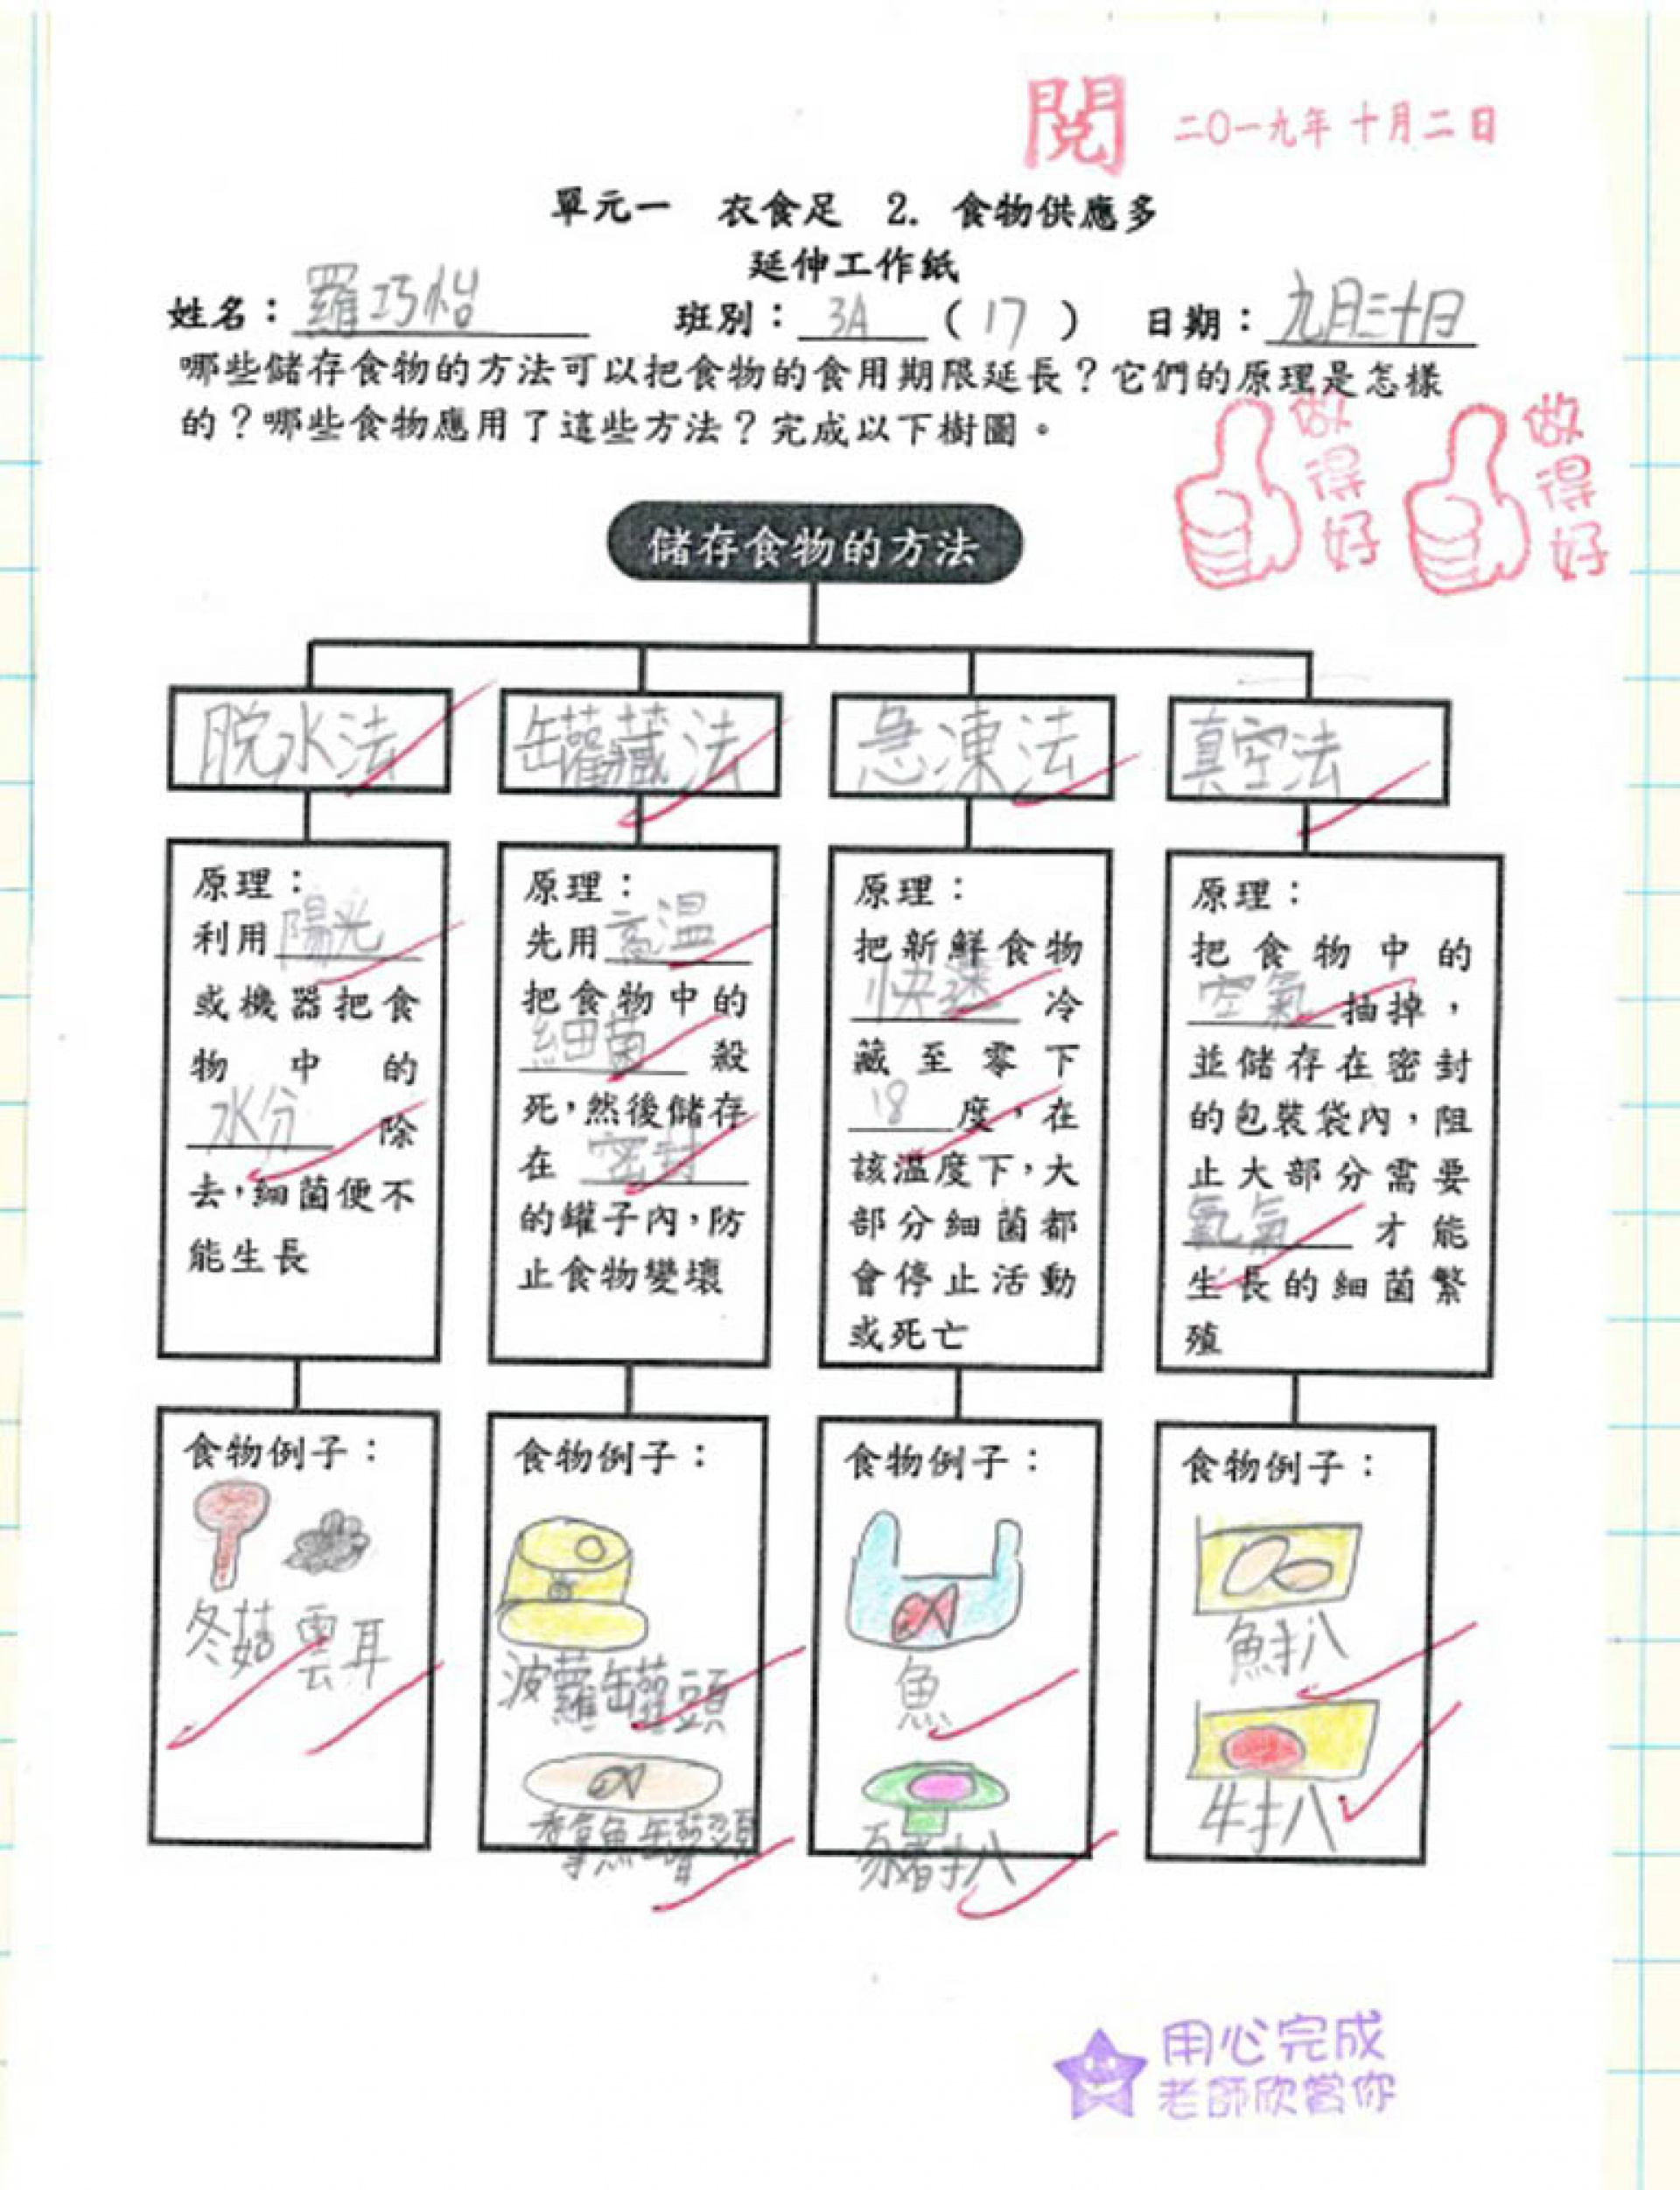 閱 二〇一九年十月二日
單元一 衣食足 2. 食物供應多
延伸工作紙
姓名：羅巧怡 班別：3A（17） 日期：九月三十日
哪些儲存食物的方法可以把食物的食用期限延長？它們的原理是怎樣
的？哪些食物應用了這些方法？完成以下樹圖。
做得好
做得好
儲存食物的方法
脫水法
原理：
利用陽光
或機器把食
物中的
水分除
去，細菌便不
能生長
食物例子：
冬菇 雲耳
罐藏法
原理：
先用高溫
把食物中的
細菌殺
死，然後儲存
在密封
的罐子內，防
止食物變壞
食物例子：
波蘿罐頭
急凍法
原理：
把新鮮食物
快速冷
藏至零下
18度，在
該溫度下，大
部分細菌都
會停止活動
或死亡
食物例子：
魚
豬扒
真空法
原理：
把食物中的
空氣抽掉，
並儲存在密封
的包裝袋內，阻
止大部分需要
氧氣才能
生長的細菌繁
殖
食物例子：
魚扒
牛扒
用心完成
老師欣賞你